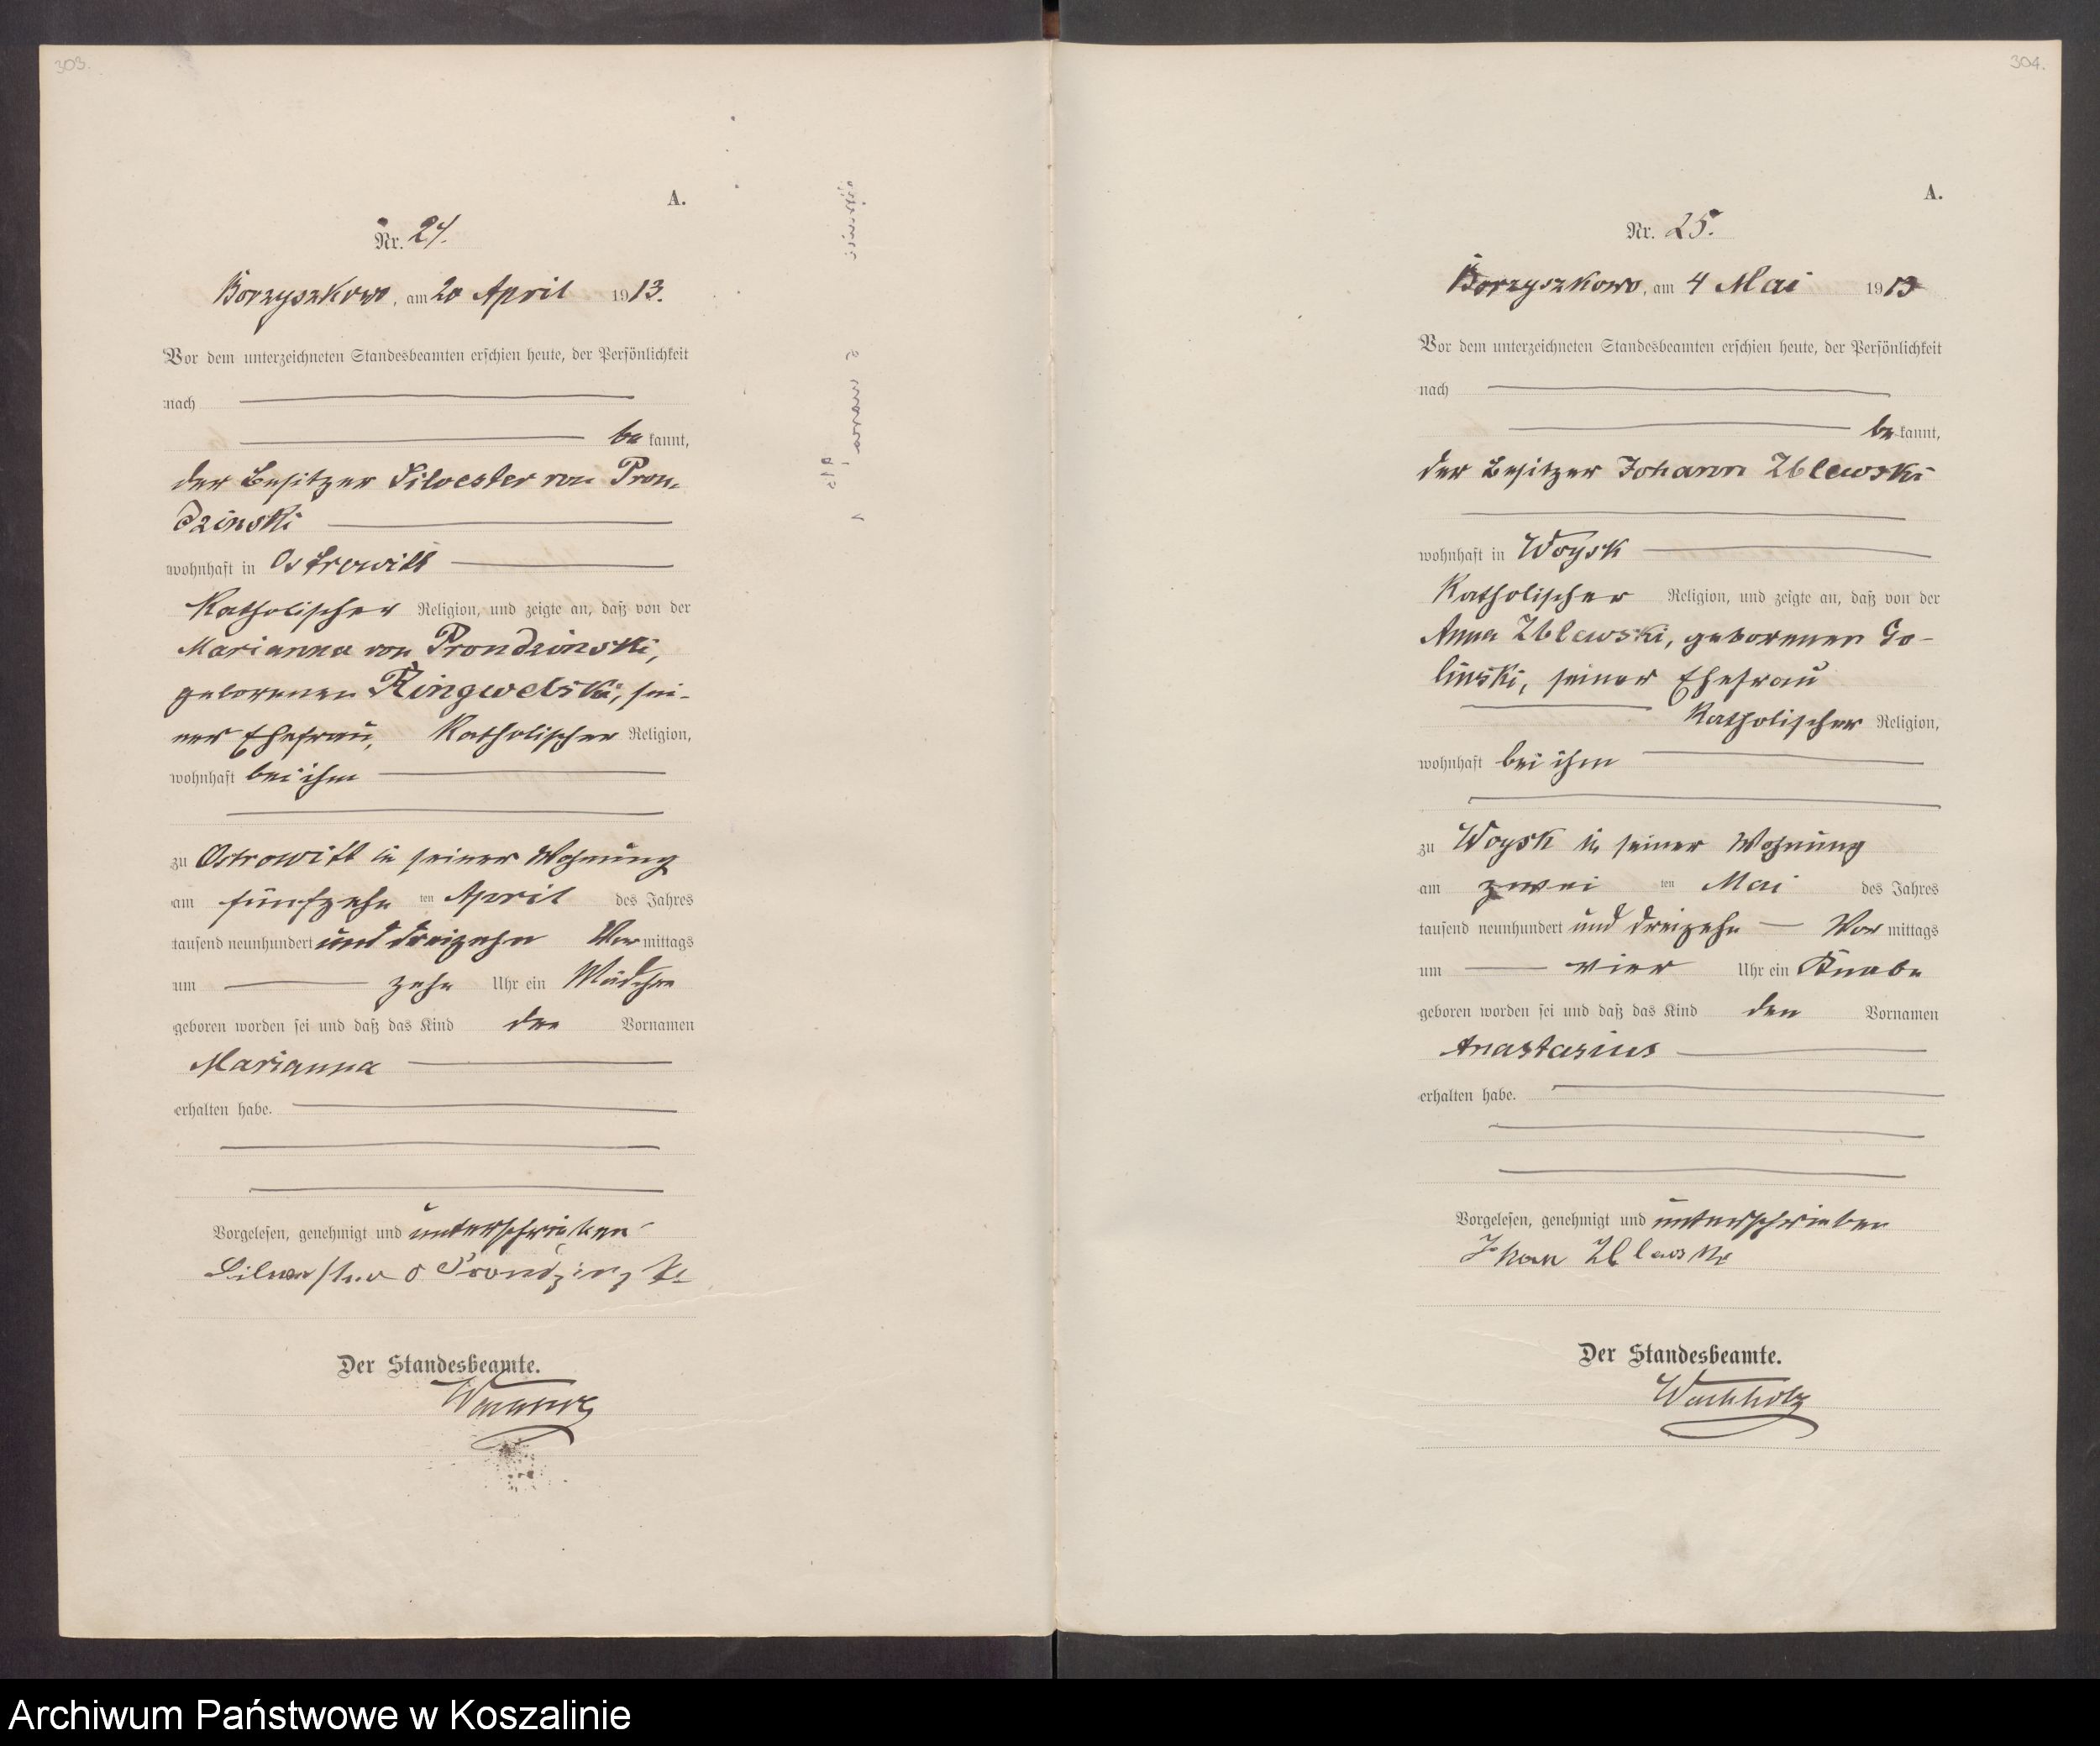 303.
A.
Nr. 24.
Borzyszkowo, am 20 April 1913.
Vor dem unterzeichneten Standesbeamten erschien heute, der Persönlichkeit
nach
be kannt,
der Besitzer Silvester von Pron-
dzinski
wohnhaft in Ostrowitt
katholischer Religion, und zeigte an, daß von der
Marianna von Prondzinski,
geborenen Ringwelski, sei-
ner Ehefrau, katholischer Religion,
wohnhaft bei ihm
zu Ostrowitt in seiner Wohnung
am fünfzehn ten April des Jahres
tausend neunhundert und dreizehn Vor mittags
um zehn Uhr ein Mädchen
geboren worden sei und daß das Kind den Vornamen
Marianna
erhalten habe.
Vorgelesen, genehmigt und unterschrieben
Der Standesbeamte.
304.
A.
Nr. 25.
Borzyszkowo, am 4 Mai 1913
Vor dem unterzeichneten Standesbeamten erschien heute, der Persönlichkeit
nach
be kannt,
der Besitzer Johann Zblewski
wohnhaft in Woysk
katholischer Religion, und zeigte an, daß von der
Anna Zblewski, geborenen Go-
linski, seiner Ehefrau
katholischer Religion,
wohnhaft bei ihm
zu Woysk in seiner Wohnung
am zwei ten Mai des Jahres
tausend neunhundert und dreizehn Vor mittags
um vier Uhr ein Knabe
geboren worden sei und daß das Kind den Vornamen
Anastasius
erhalten habe.
Vorgelesen, genehmigt und unterschrieben
Johan Zblewski
Der Standesbeamte.
Wachholz
Archiwum Państwowe w Koszalinie